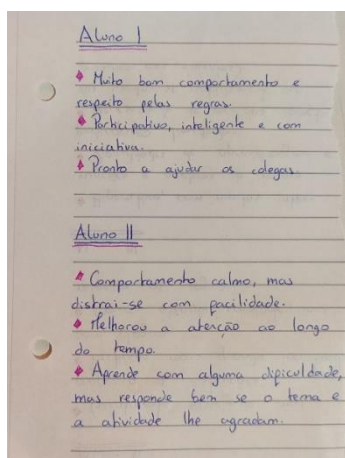 Aluno I
♦ Muito bom comportamento e
respeito pelas regras.
♦ Participativo, inteligente e com
iniciativa.
♦ Pronto a ajudar os colegas.
Aluno II
♦ Comportamento calmo, mas
distrai-se com facilidade.
♦ Melhorou a atenção ao longo
do tempo.
♦ Aprende com alguma dificuldade,
mas responde bem se o tema e
a atividade lhe agradam.